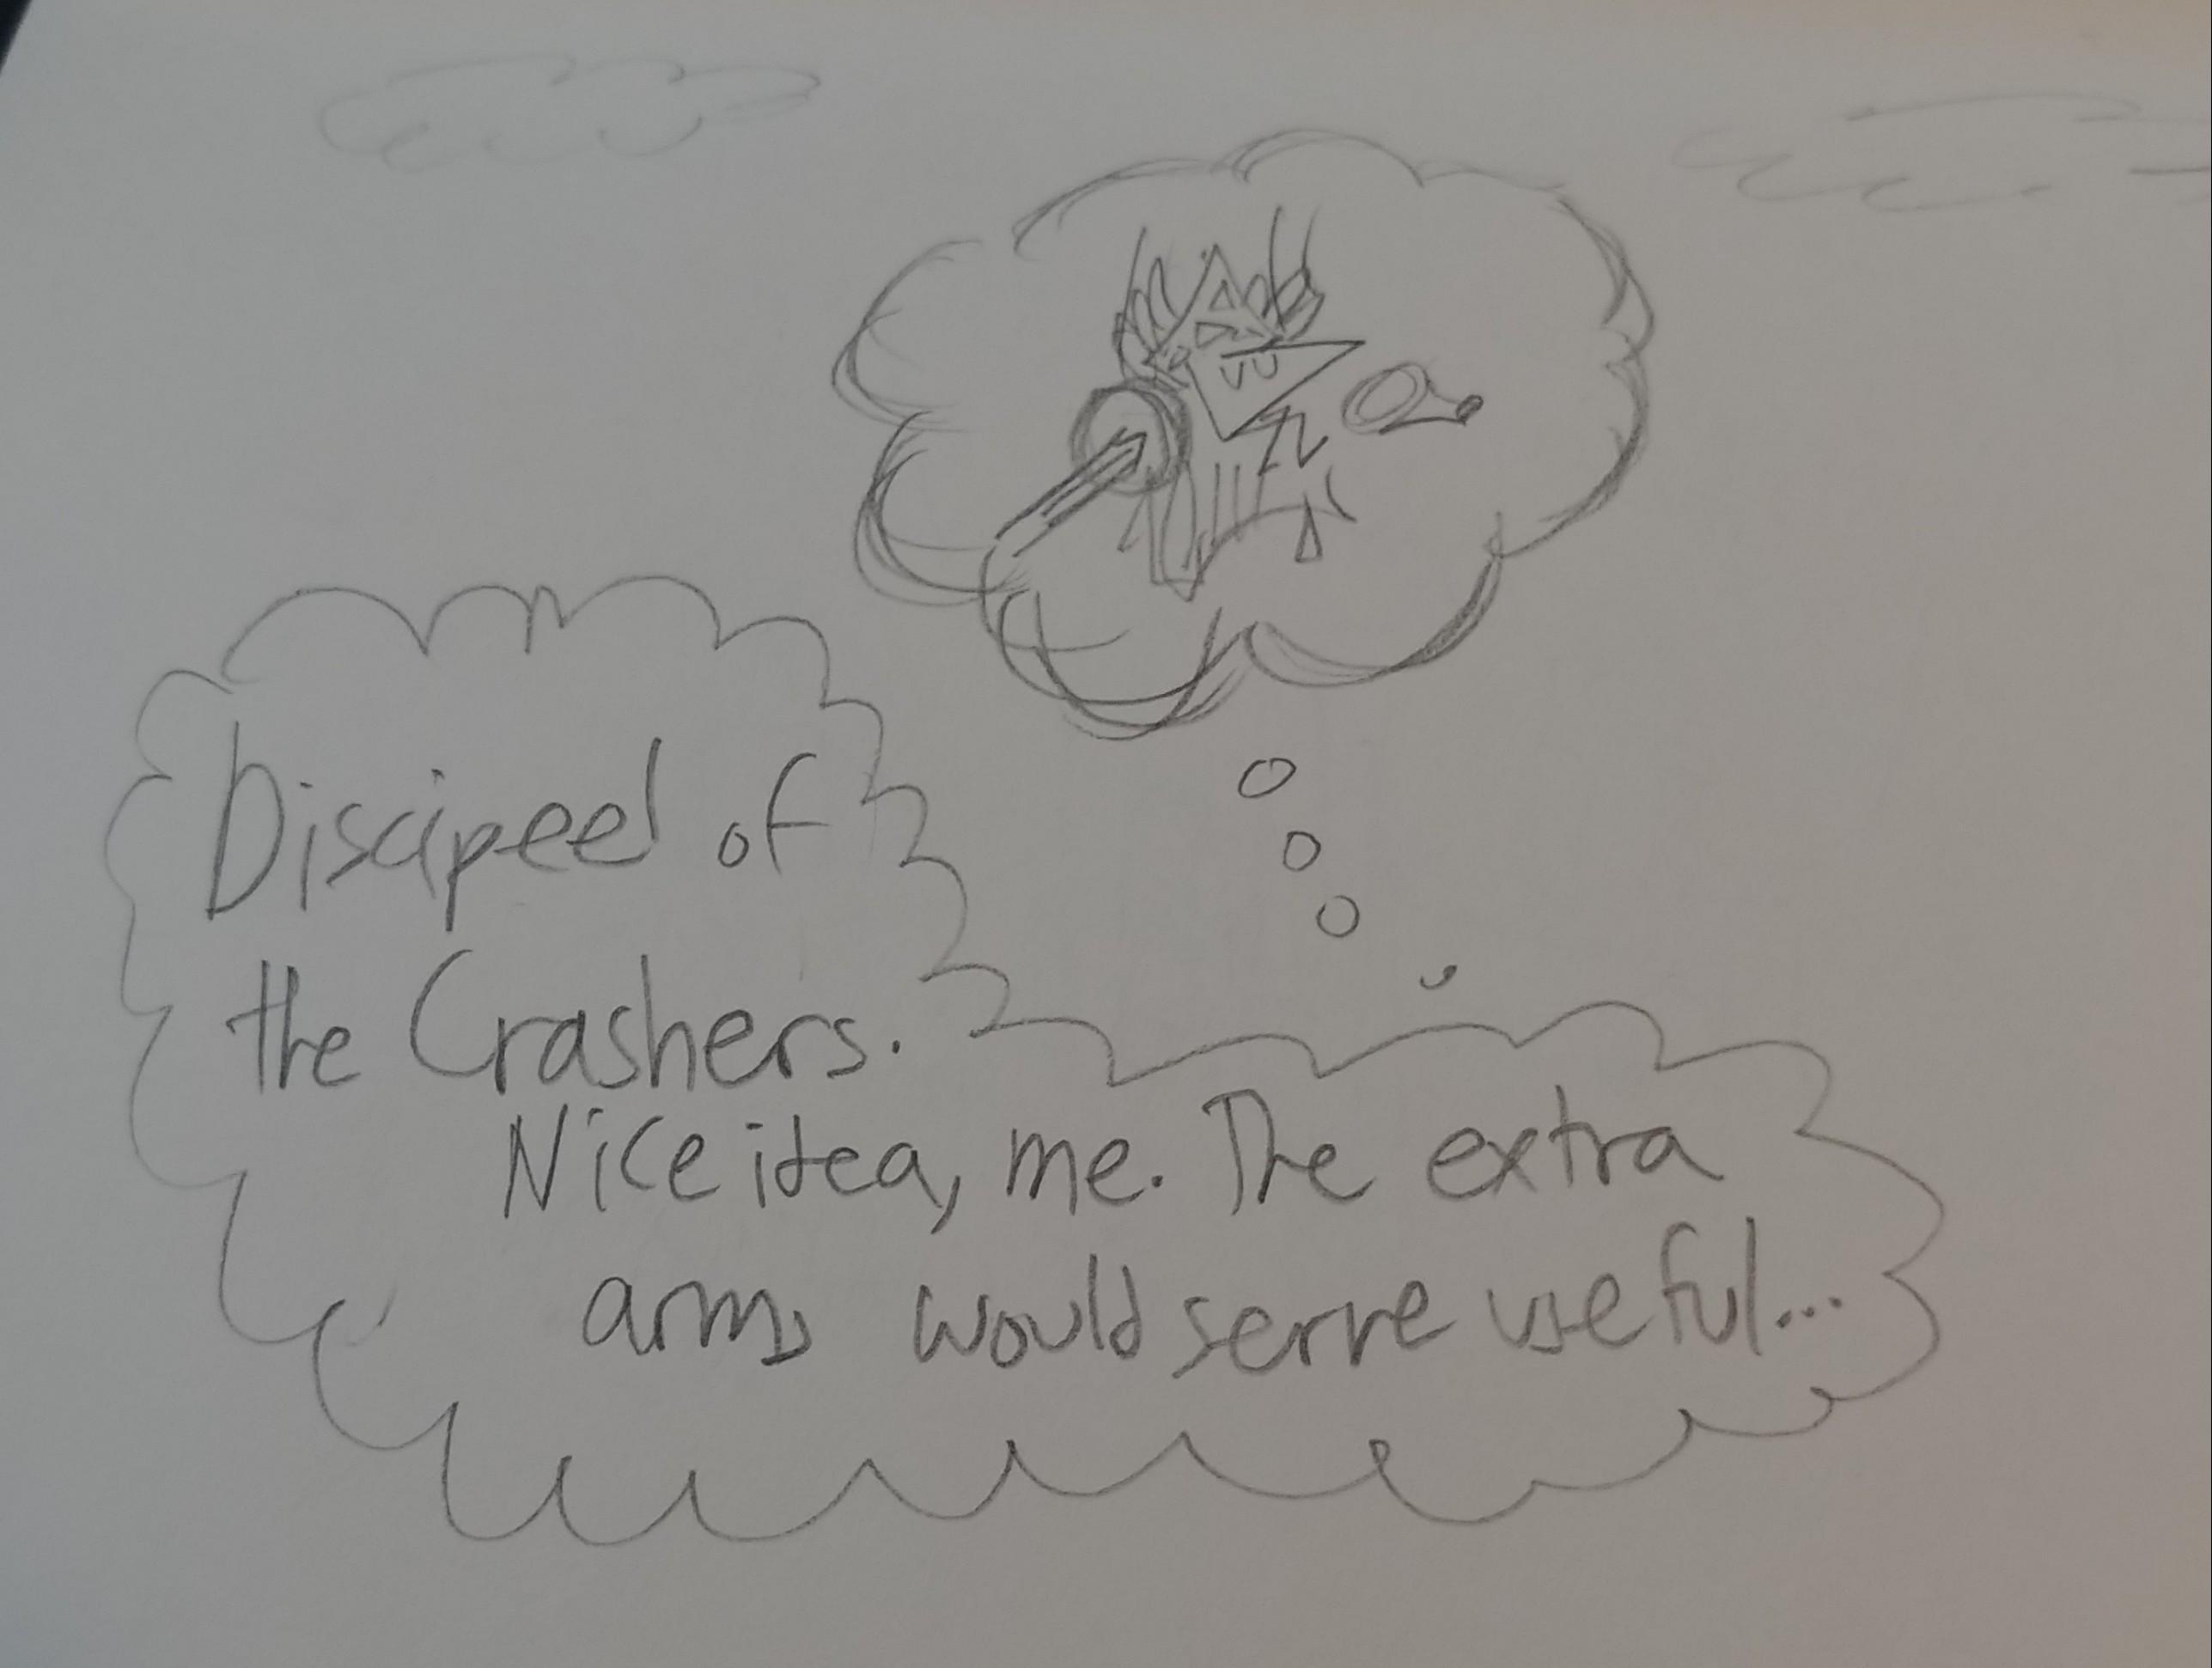 Discipeel of
the Crashers.
Nice idea, me. The extra
arms would serve useful...